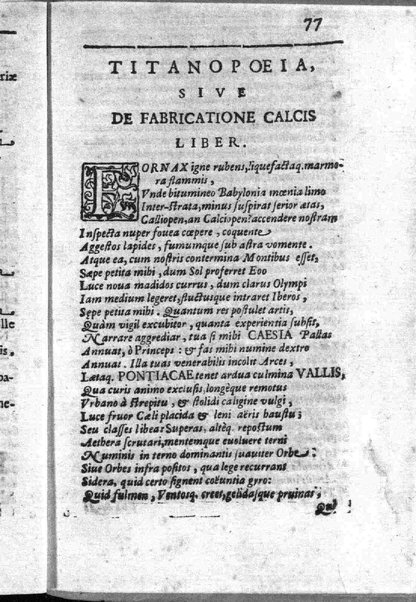 77
TITANOPOEIA,
SIVE
DE FABRICATIONE CALCIS
LIBER.
FORNAX igne rubens, liquefactaq. marmo-
ra flammis,
Vnde bitumineo Babylonia mœnia limo
Inter-strata, minus suspirat serior ætas,
Calliopen, an Calciopen? accendere nostram
Inspecta nuper fouea cœpere, coquente
Aggestos lapides, fumumque sub astra vomente.
Atque ea, cum nostris contermina Montibus esset,
Sæpe petita mihi, dum Sol proferret Eoo
Luce noua madidos currus, dum clarus Olympi
Iam medium legeret, fluctusque intraret Iberos,
Sepe petita mihi. Quantum res postulet artis,
Quàm vigil excubitor, quanta experientia subsit,
Narrare aggrediar, tua si mihi CAESIA Pallas
Annuat, ò Princeps: & fas mihi numine dextro
Annuat. Illa tuas venerabilis incolit Arces,
Lætaq. PONTIACAE tenet ardua culmina VALLIS,
Qua curis animo exclusis, longèque remotus
Vrbano à strepitu, & stolidi caligine vulgi,
Luce fruor Cæli placida & leni aëris haustu;
Seu classes libeat Superas, altèq. repostum
Aethera scrutari, mentemque euoluere terni
Numinis in terno dominantis suauiter Orbe:
Siue Orbes infra positos, qua lege recurrant
Sidera, quid certo signent coëuntia gyro:
Quid fulmen, Ventosq. creet, gelidasque pruinas;
riæ
lle
is,
ba-
ne-